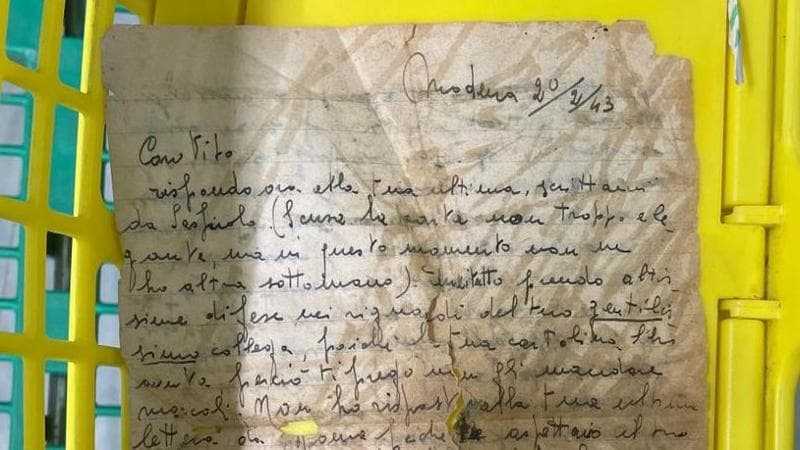 Modena 20/2/43
Caro Vito
rispondo ora alla tua ultima, scrittami
da Sassuolo (Scusa la carta non troppo ele
gante, ma in questo momento non ne
ho altra sottomano). prendo altis
sime difese nei riguardi del tuo gentilis
simo collega, poiché la tua cartolina l'ho
avuta, perciò ti prego non gli mandare
moccoli. Non ho risposto alla tua ultima
lettera da perché aspettavo il tuo